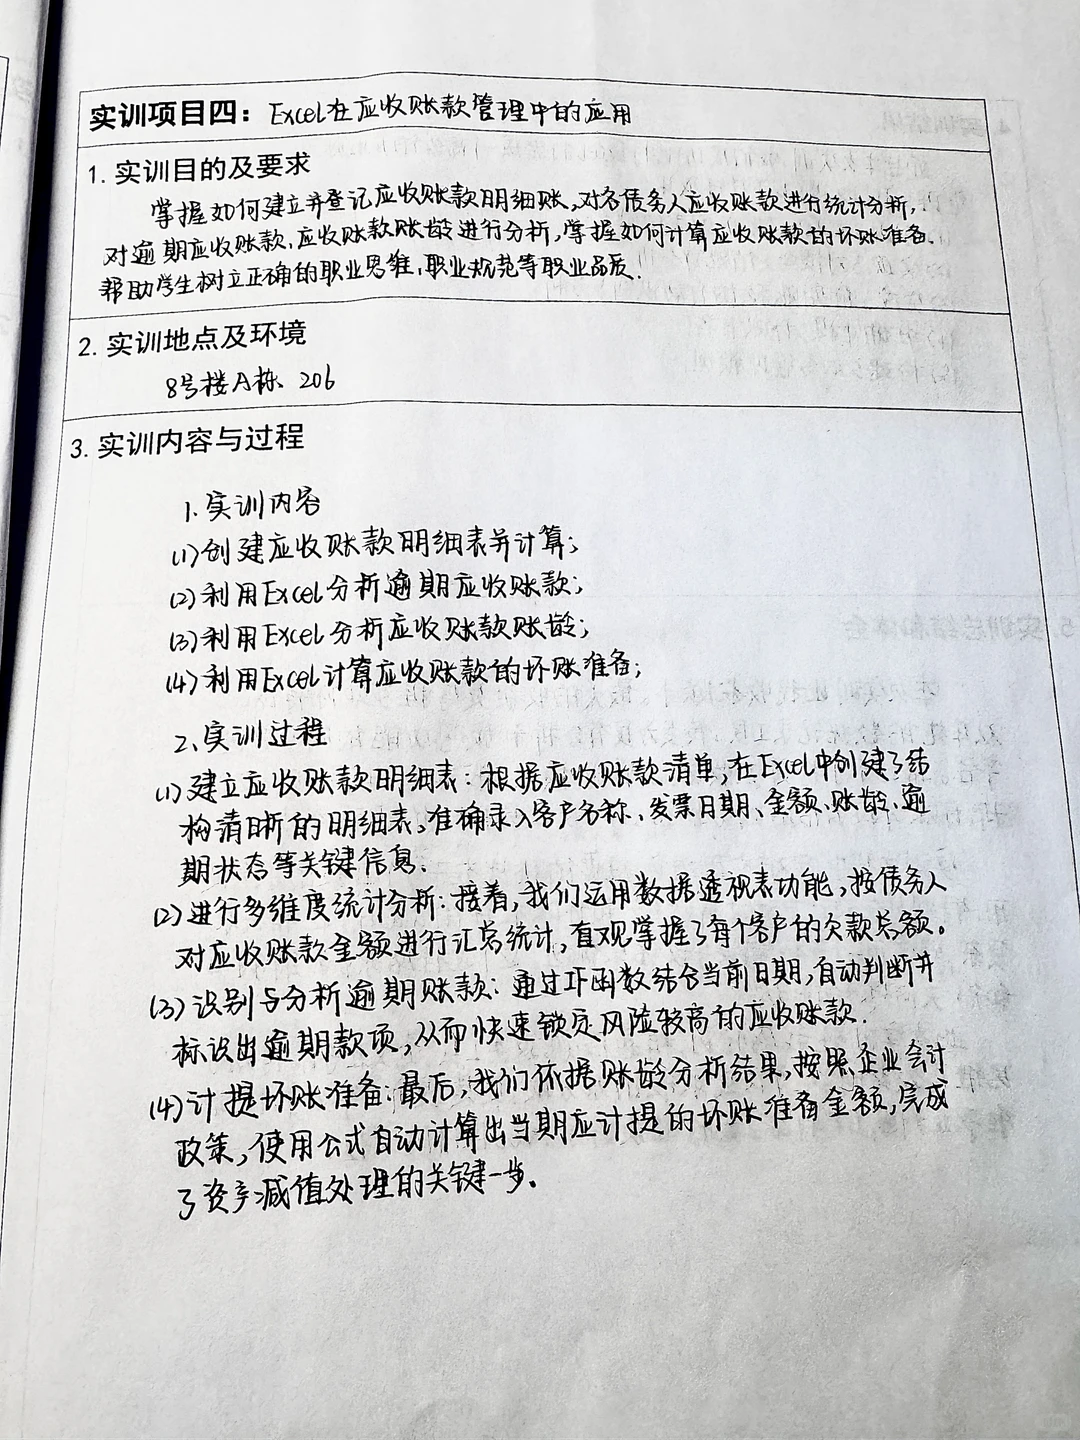 实训项目四：Excel在应收账款管理中的应用
1. 实训目的及要求
掌握如何建立并登记应收账款明细账，对各债务人应收账款进行统计分析，
对逾期应收账款、应收账款账龄进行分析，掌握如何计算应收账款的坏账准备。
帮助学生树立正确的职业思维，职业规范等职业品质。
2. 实训地点及环境
8号楼A栋、206
3. 实训内容与过程
1. 实训内容
(1)创建应收账款明细表并计算；
(2)利用Excel分析逾期应收账款；
(3)利用Excel分析应收账款账龄；
(4)利用Excel计算应收账款的坏账准备；
2. 实训过程
(1)建立应收账款明细表：根据应收账款清单，在Excel中创建了结
构清晰的明细表，准确录入客户名称、发票日期、金额、账龄、逾
期状态等关键信息。
(2)进行多维度统计分析：接着，我们运用数据透视表功能，按债务人
对应收账款金额进行汇总统计，直观掌握了每个客户的欠款总额。
(3)识别与分析逾期账款：通过IF函数结合当前日期，自动判断并
标识出逾期款项，从而快速锁定风险较高的应收账款.
(4)计提坏账准备：最后，我们依据账龄分析结果，按照企业会计
政策，使用公式自动计算出当期应计提的坏账准备金额，完成
了资产减值处理的关键一步。